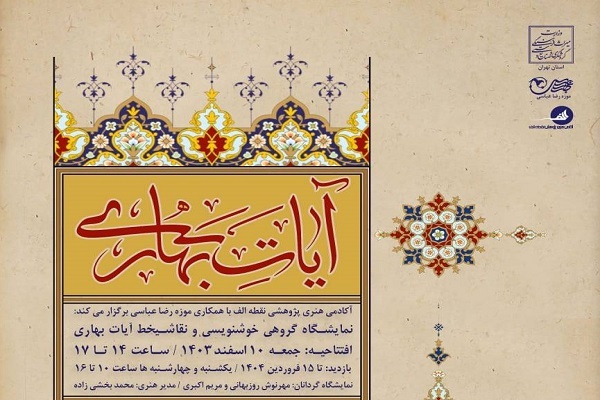 استان تهران
موزه رضا عباسی
آیاتِ بهاری
آکادمی هنری پژوهشی نقطه الف با همکاری موزه رضا عباسی برگزار می کند:
نمایشگاه گروهی خوشنویسی و نقاشیخط آیات بهاری
افتتاحیه: جمعه ۱۰ اسفند ۱۴۰۳ / ساعت ۱۴ تا ۱۷
بازدید: تا ۱۵ فروردین ۱۴۰۴ / یکشنبه و چهارشنبه ها ساعت ۱۰ تا ۱۶
نمایشگاه گردانان: مهرنوش روزبهانی و مریم اکبری / مدیر هنری: محمد بخشی زاده